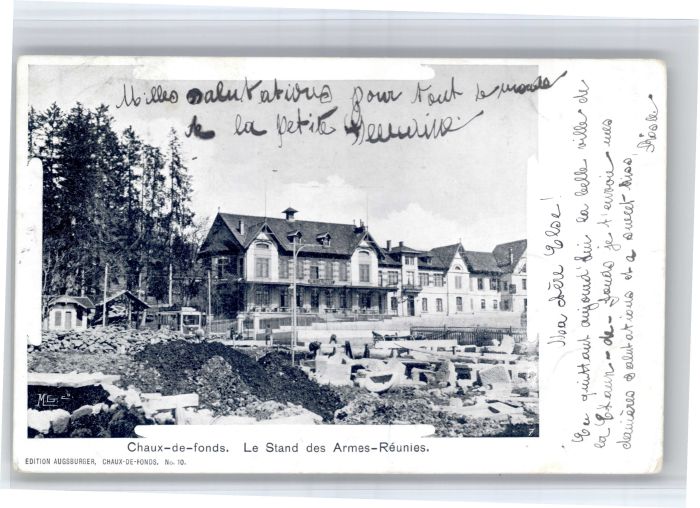 Milles salutations pour tout le monde
de la petite
Ma chère Else!
Ce quittant aujourd'hui la belle ville de
la Chaux-de-fonds je t'envoie mes
dernières salutations et a sweet kiss!
Rösle
MG
7
Chaux-de-fonds. Le Stand des Armes-Réunies.
ÉDITION AUGSBURGER, CHAUX-DE-FONDS. No. 10.